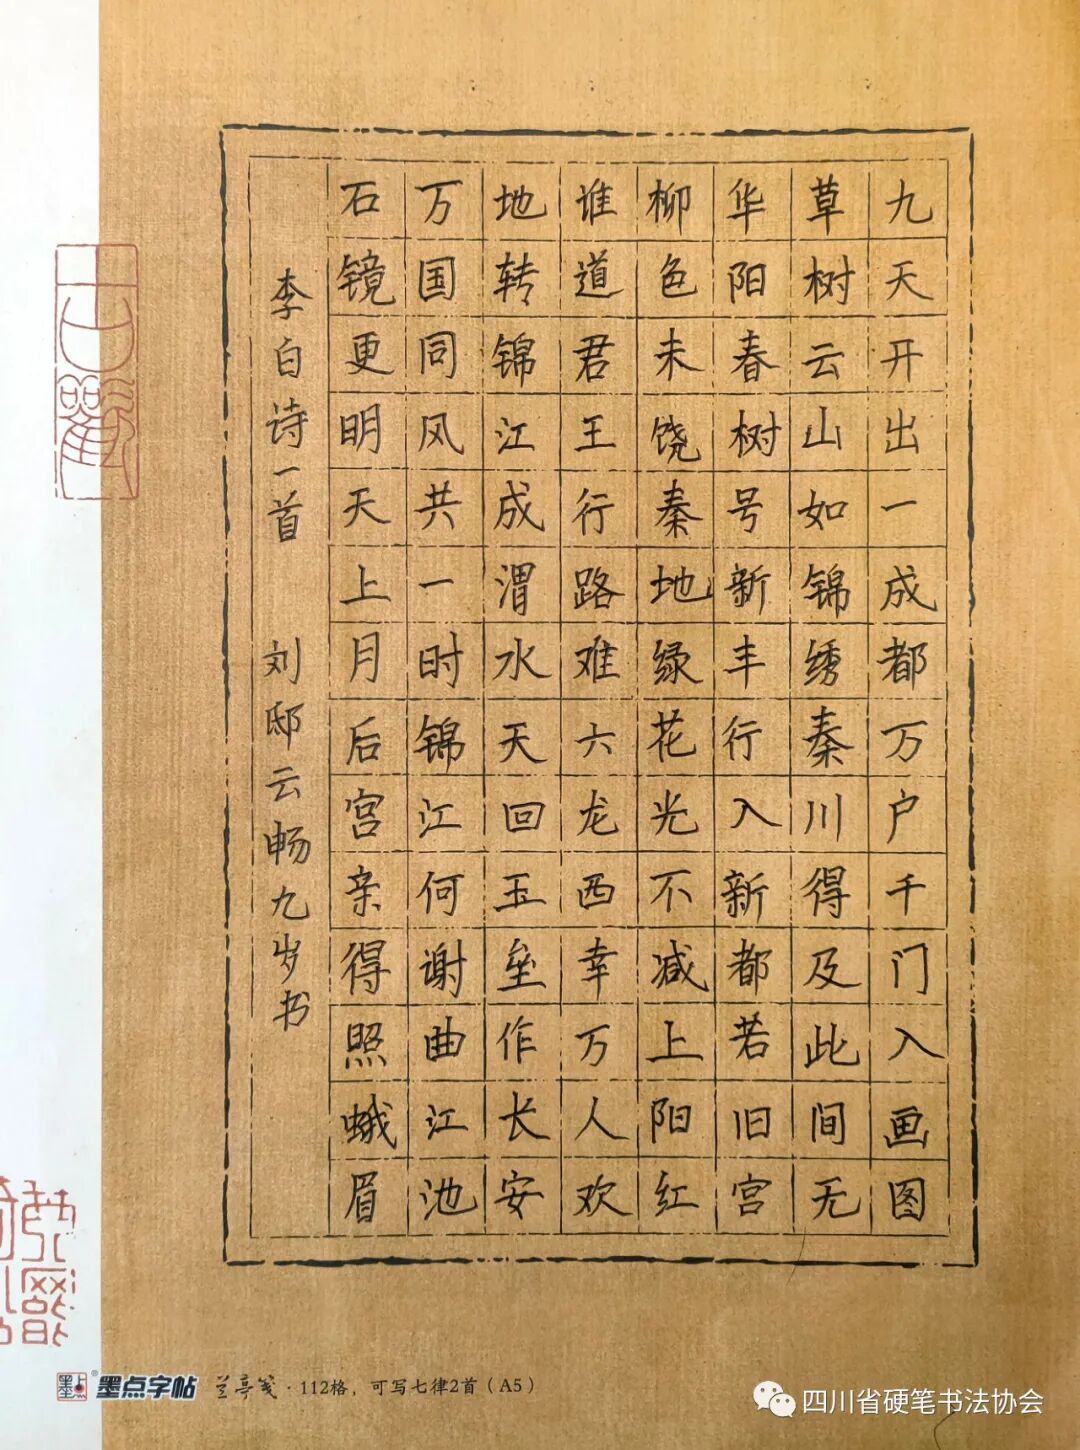 九天开出一成都万户千门入画图
草树云山如锦绣秦川得及此间无
华阳春树号新丰行入新都若旧宫
柳色未饶秦地绿花光不减上阳红
谁道君王行路难六龙西幸万人欢
地转锦江成渭水天回玉垒作长安
万国同风共一时锦江何谢曲江池
石镜更明天上月后宫亲得照蛾眉
李白诗一首 刘邸云畅九岁书
墨点字帖 兰亭笺·112格，可写七律2首（A5）
四川省硬笔书法协会